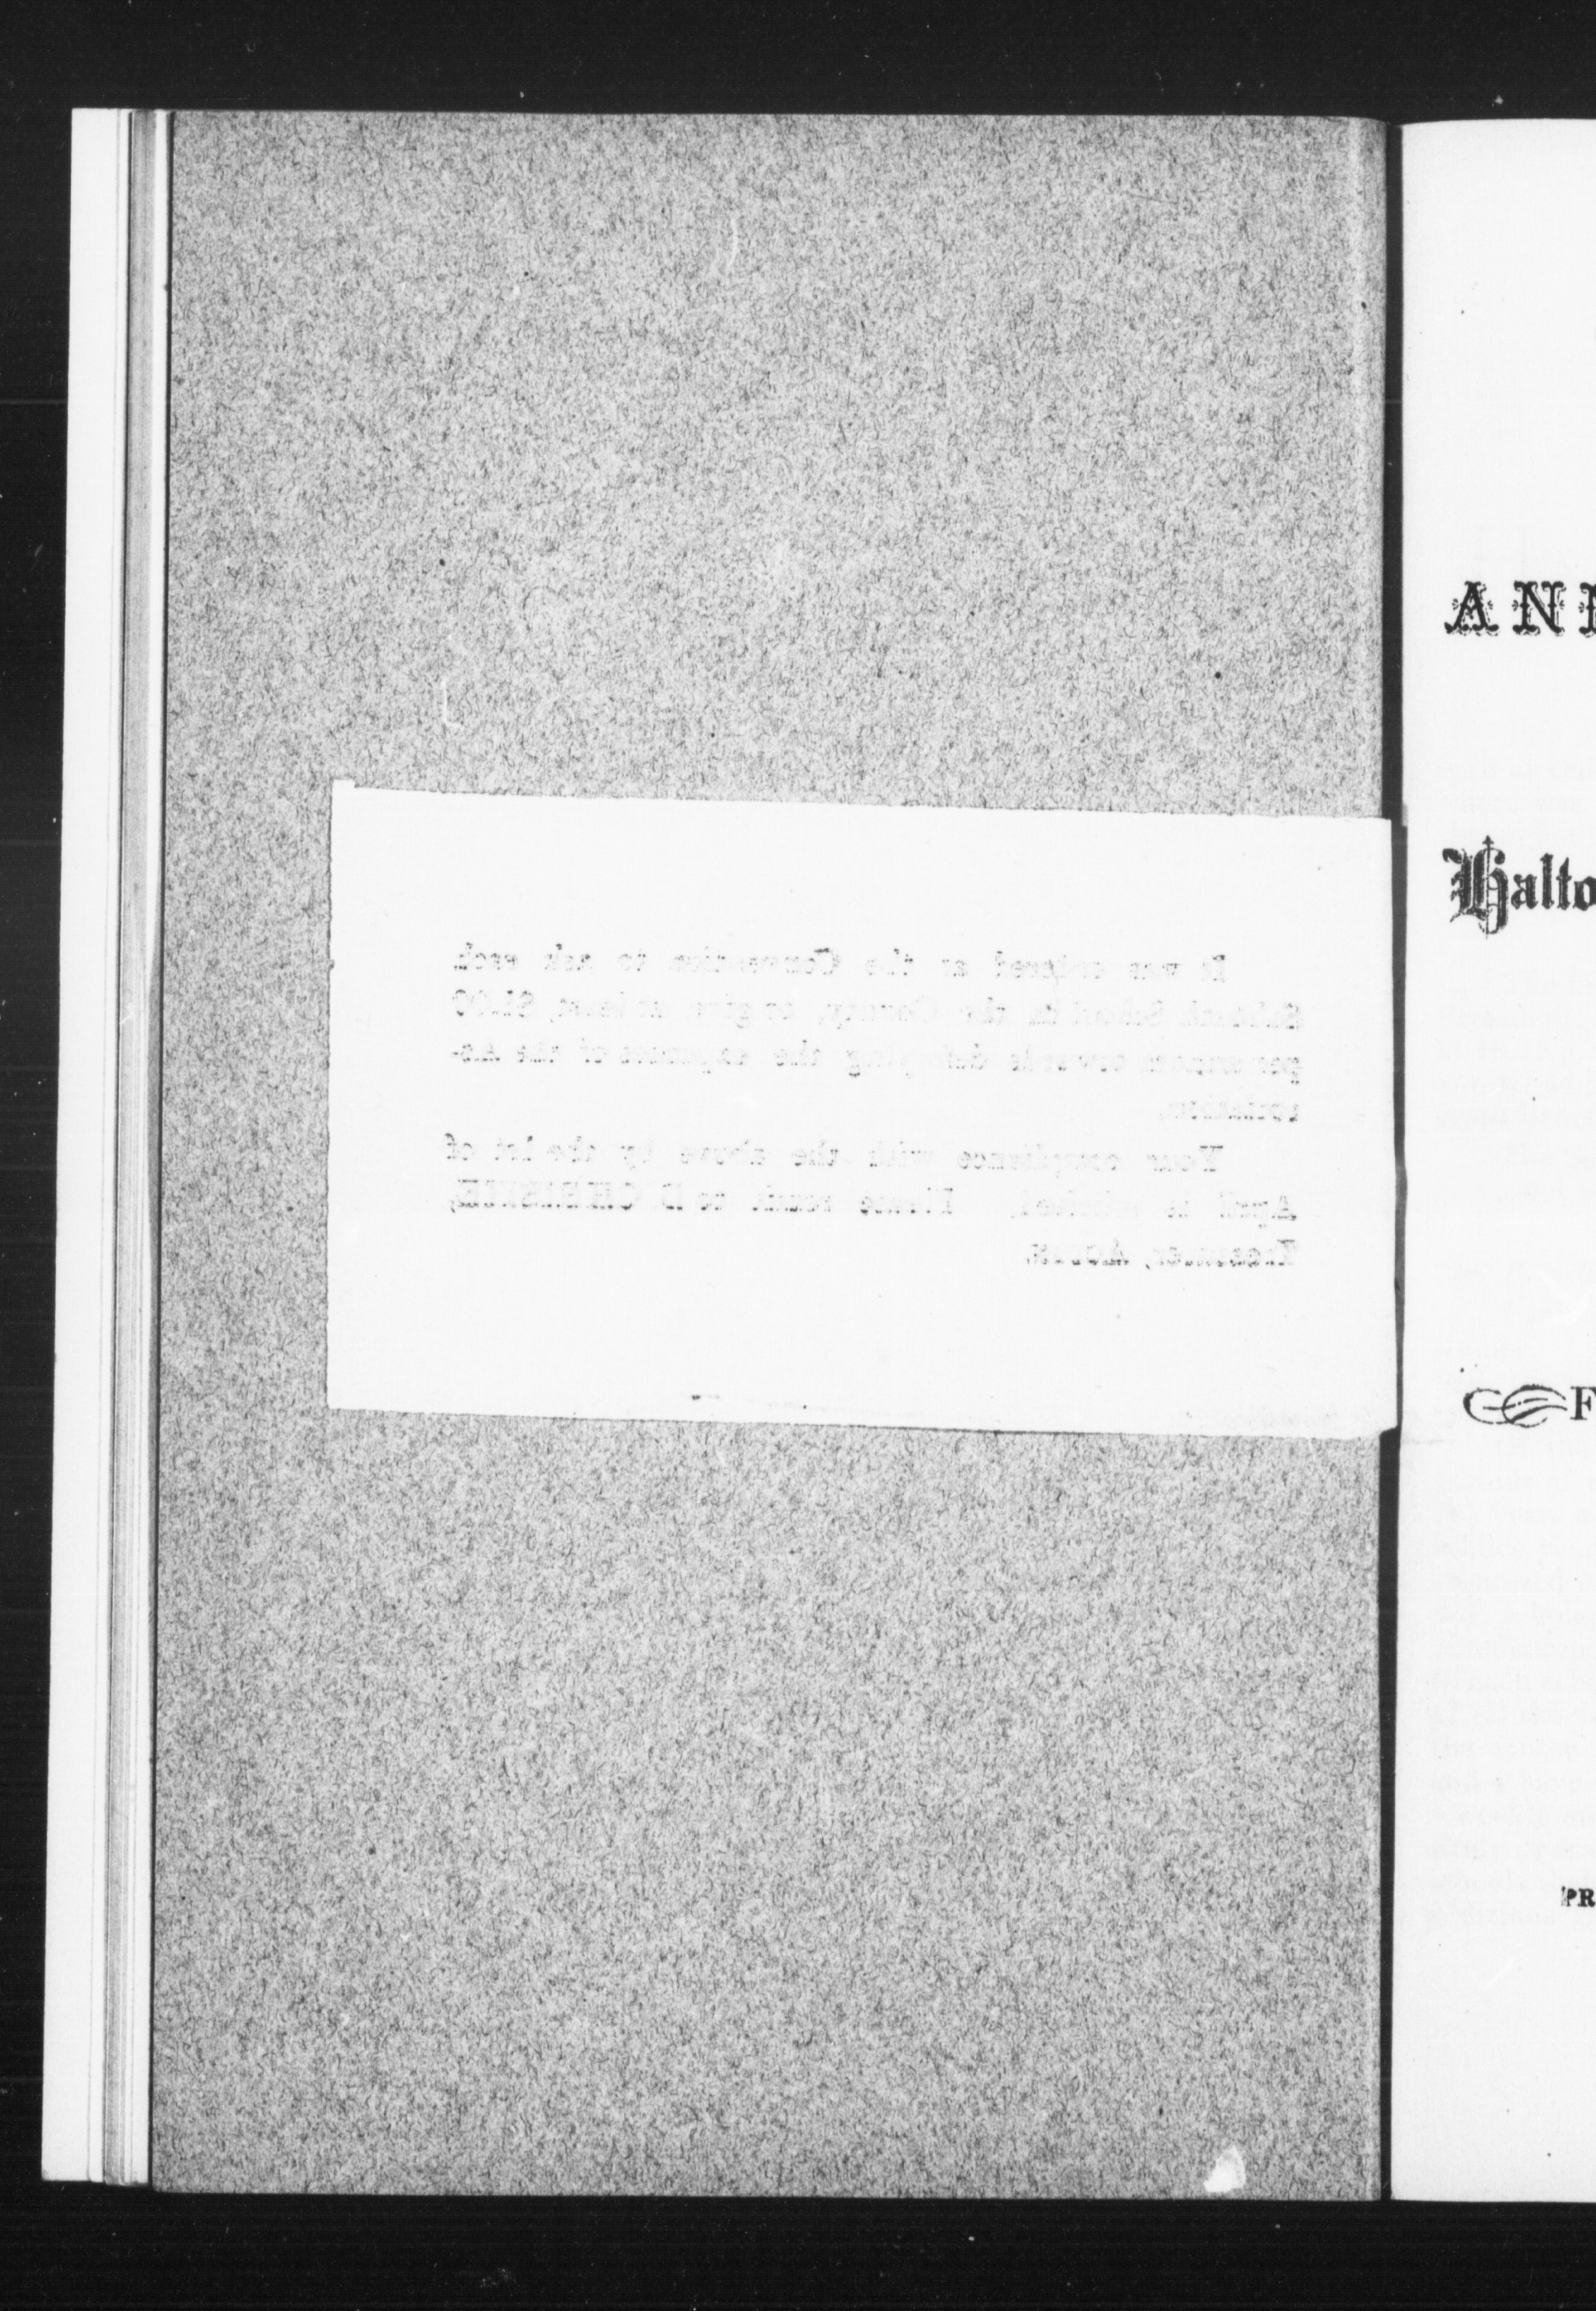 It was ordered at the Convention to ask each
Sabbath School in the County, to give, at least, $1.00
per annum towards defraying the expenses of the As-
sociation.
Your compliance with the above by the 1st of
April is solicited. Please remit to D. CHRISTIE,
Treasurer, ACTON.
ANN
Halto
F
PR